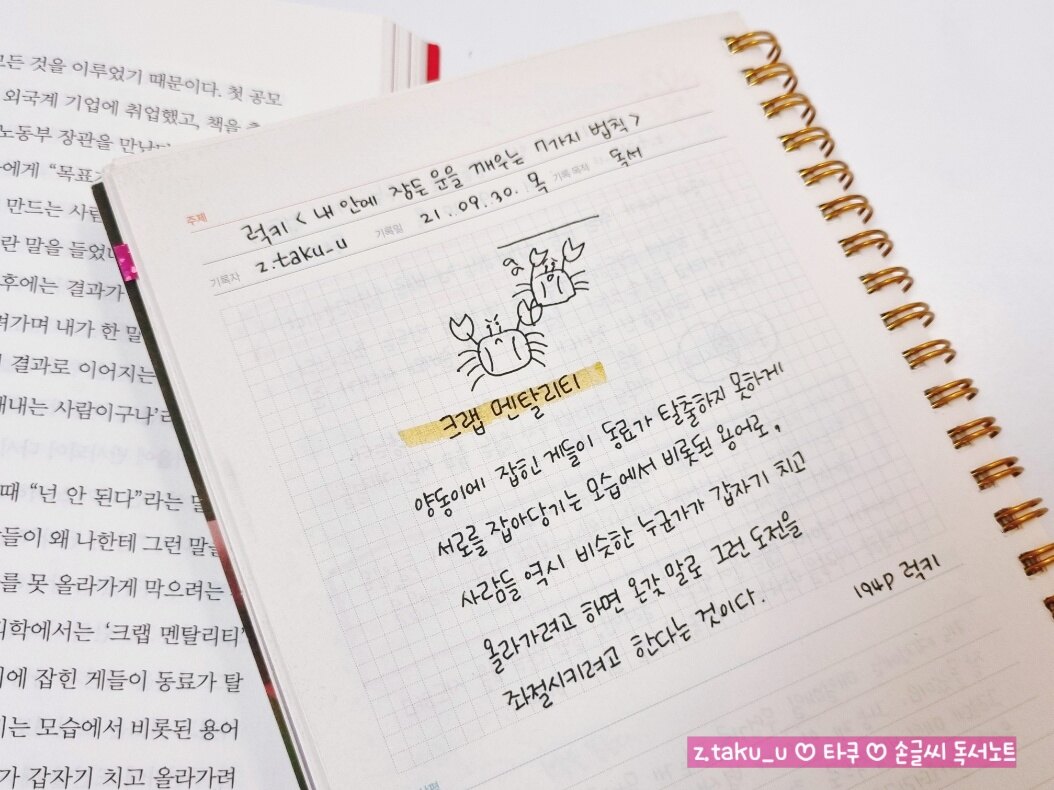 모든 것을 이루었기 때문이다. 첫 공모
외국계 기업에 취업했고, 책을
노동부 장관을 만났
에게 “목표
만드는 사람
란 말을 들었
후에는 결과가
려가며 내가 한 말
결과로 이어지는
해내는 사람이구나’라
때 “넌 안 된다”라는 말
람들이 왜 나한테 그런 말을
를 못 올라가게 막으려는
리학에서는 ‘크랩 멘탈리티’
이에 잡힌 게들이 동료가 탈
기는 모습에서 비롯된 용어
가 갑자기 치고 올라가려
주제 럭키 < 내 안에 잠든 운을 깨우는 7가지 법칙 >
기록자 z.taku_u 기록일 21.09.30. 목 기록 목적 독서
크랩 멘탈리티
양동이에 잡힌 게들이 동료가 탈출하지 못하게
서로를 잡아당기는 모습에서 비롯된 용어로,
사람들 역시 비슷한 누군가가 갑자기 치고
올라가려고 하면 온갖 말로 그런 도전을
좌절시키려고 한다는 것이다.
194p 럭키
z.taku_u ♡ 타쿠 ♡ 손글씨 독서노트